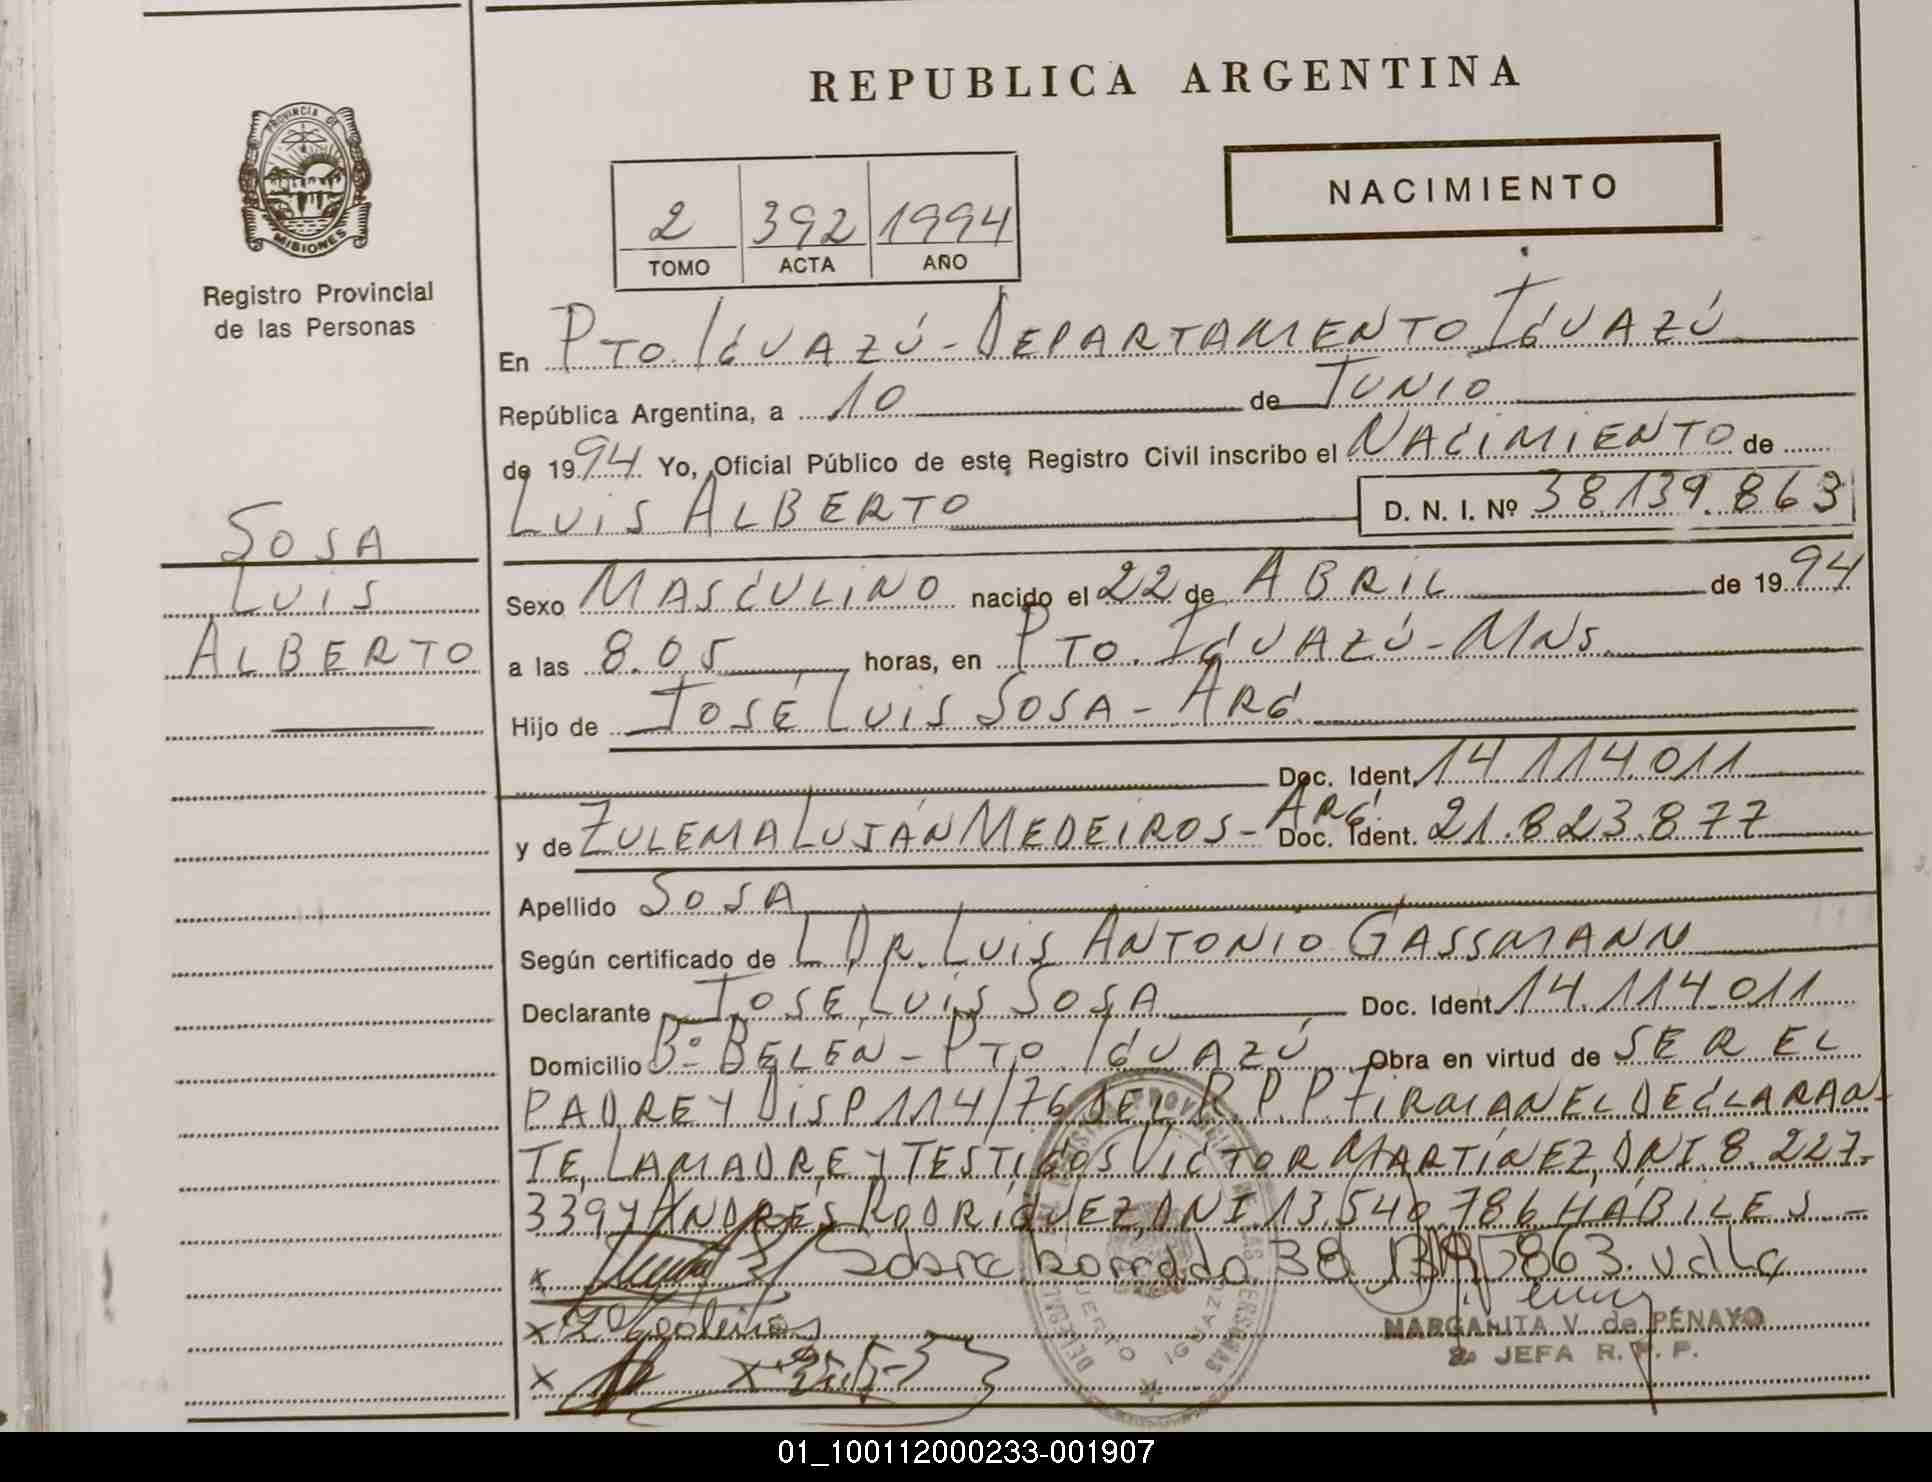 REPUBLICA ARGENTINA
PROVINCIA DE
MISIONES
Registro Provincial
de las Personas
NACIMIENTO
2 392 1994
TOMO ACTA AÑO
En PTO. IGUAZÚ - DEPARTAMENTO IGUAZÚ
República Argentina, a 10 de JUNIO
de 1994 Yo, Oficial Público de este Registro Civil inscribo el NACIMIENTO de
LUIS ALBERTO D. N. I. Nº 38.139.863
SOSA
LUIS
ALBERTO
Sexo MASCULINO nacido el 22 de ABRIL de 1994
a las 8.05 horas, en PTO. IGUAZÚ - MNS.
Hijo de JOSÉ LUIS SOSA - ARG.
Doc. Ident. 14.114.011
y de ZULEMA LUJÁN MEDEIROS - ARG. Doc. Ident. 21.823.877
Apellido SOSA
Según certificado de L DR. LUIS ANTONIO GASSMANN
Declarante JOSÉ LUIS SOSA Doc. Ident. 14.114.011
Domicilio Bº BELÉN - PTO. IGUAZÚ Obra en virtud de SER EL
PADRE Y DISP 114/76 DEL R.P.P. FIRMAN EL DECLARAN-
TE, LA MADRE Y TESTIGOS VICTOR MARTÍNEZ, DNI. 8.227.
339 Y ANDRÉS RODRÍGUEZ, DNI. 13.540.786 HÁBILES -
x Sobre borrado 38.139.863. vale
x Z Medeiros
x x
PUERTO IGUAZU
MARGARITA V. de PENAYO
2a JEFA R. P. P.
01_100112000233-001907